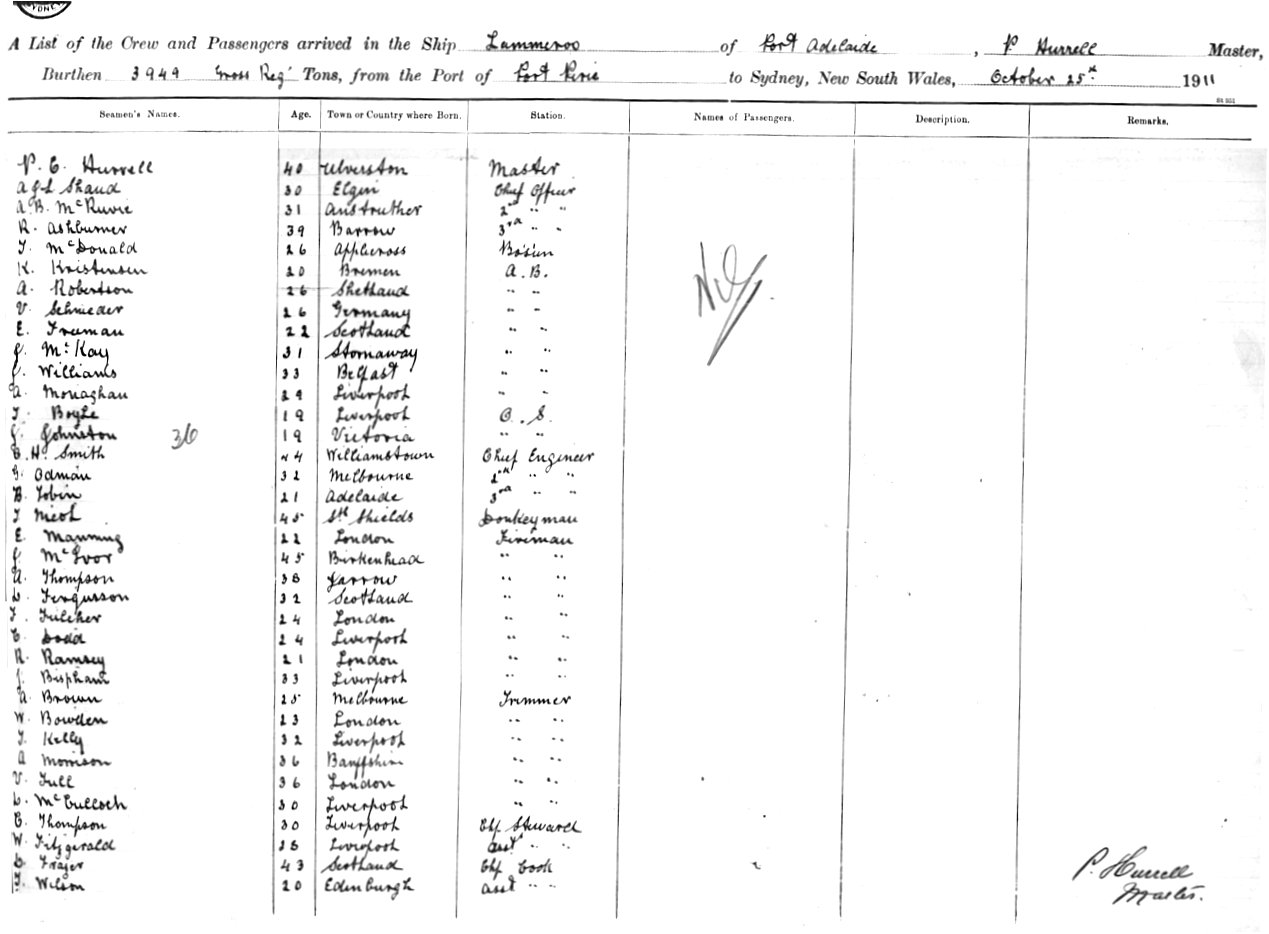 SYDNEY
A List of the Crew and Passengers arrived in the Ship Lammeroo of Port Adelaide , P Hurrell Master,
Burthen 3949 Gross Reg Tons, from the Port of Port Pirie to Sydney, New South Wales, October 25th 1911
Seamen's Names. Age. Town or Country where Born. Station. Names of Passengers. Description. Remarks.
P. E. Hurrell 40 Ulverston Master
A G L Shand 30 Elgin Chief Officer
A. B. McRuvie 31 Anstruther 2nd " "
R. Ashburner 39 Barrow 3rd " "
T. McDonald 26 Applecross Bosun
K. Kristensen 20 Bremen A. B.
A. Robertson 26 Shetland " "
V. Schnieder 26 Germany " "
E. Freeman 22 Scotland " "
J. McKay 31 Stornaway " "
J. Williams 33 Belfast " "
A. Monaghan 29 Liverpool " "
T. Boyle 19 Liverpool O. S.
J. Johnston 36 19 Victoria " "
C. H. Smith 44 Williamstown Chief Engineer
G. Odman 32 Melbourne 2nd " "
B. Tobin 21 Adelaide 3rd " "
T 45 Sth Shields Donkeyman
E. Manning 22 London Fireman
J. McIvor 45 Birkenhead " "
A. Thompson 38 Jarrow " "
D. Fergusson 32 Scotland " "
F. Fulcher 24 London " "
C. Dodd 24 Liverpool " "
R. Ramsey 21 London " "
J. Bispham 33 Liverpool " "
A. Brown 25 Melbourne Trimmer
W. Bowden 23 London " "
T. Kelly 32 Liverpool " "
A Morrison 36 Banffshire " "
V. Tull 36 London " "
D. McCulloch 30 Liverpool " "
C. Thompson 30 Liverpool Chf Steward
W. Fitzgerald 28 Liverpool asst " "
D. Frazer 43 Scotland Chf Cook
T. Wilson 20 Edenburgh asst " "
P. Hurrell
Master.